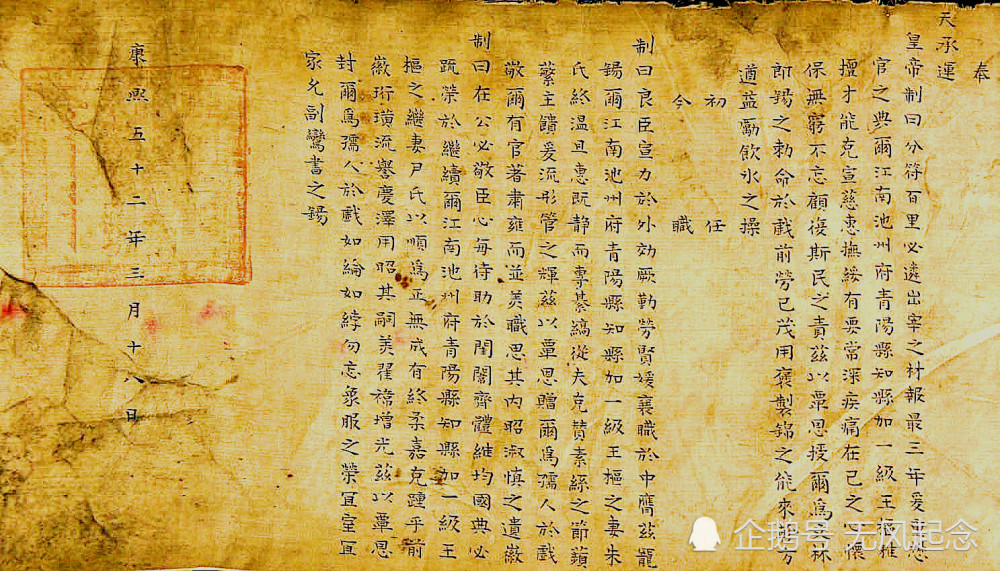 奉
天承運
皇帝制曰分符百里必遴出宰之材報最三年爰重懋
官之典爾江南池州府青陽縣知縣加一級王樞雅
擅才能克宣慈惠撫綏有要常深疾痛在己之懷
保無窮不忘顧復斯民之責茲以覃恩授爾爲林
郎錫之勅命於戲前勞已茂用褒製錦之能來方
遒益勵飲冰之操
初任
今職
制曰良臣宣力於外効厥勤勞賢媛襄職於中膺茲寵
錫爾江南池州府青陽縣知縣加一級王樞之妻朱
氏終温且惠既靜而專綦縞從夫克賛素絲之節蘋
蘩主饋爰流彤管之輝茲以覃恩贈爾爲孺人於戲
敬爾有官著肅雍而並美職思其內昭淑慎之遺徽
制曰在公必敬臣心每待助於閨闈齊體維均國典必
疏榮於繼續爾江南池州府青陽縣知縣加一級王
樞之繼妻尹氏以順爲正無成有終柔嘉克踵乎前
徽珩璜流譽慶澤用昭其嗣美翟襘增光茲以覃恩
封爾爲孺人於戲如綸如綍勿忘象服之榮宜室宜
家允副鸞書之錫
康熙五十二年三月十八日
企鹅号 无风起念